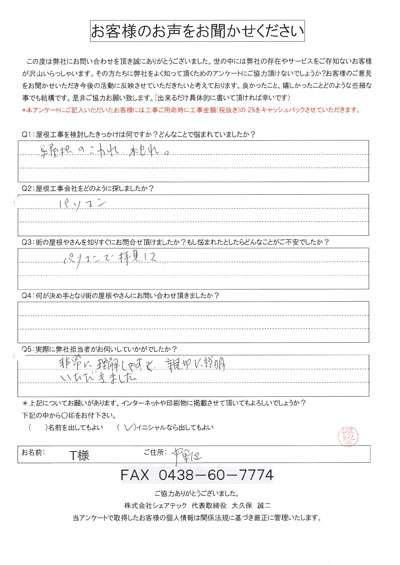 お客様のお声をお聞かせください
この度は弊社にお問い合わせを頂き誠にありがとうございました。世の中には弊社の存在やサービスをご存知ないお客様
が沢山いらっしゃいます。その方たちに弊社をよく知って頂くためのアンケートにご協力頂けないでしょうか?お客様のご意見
をお聞かせいただき今後の活動に反映させていただきたいと考えております。良かったこと、嬉しかったことどのような些細な
事でも結構です。是非ご協力お願い致します。(出来るだけ具体的に書いて頂ければ幸いです)
*本アンケートにご記入いただいたお客様には工事ご用命時に工事金額(税抜き)の2%をキャッシュバックさせていただきます。
Q1:屋根工事を検討したきっかけは何ですか?どんなことで悩まれていましたか?
屋根のこわれ
Q2:屋根工事会社をどのように探しましたか?
パソコン
Q3:街の屋根やさんを知りすぐにお問合せ頂けましたか?もし悩まれたとしたらどんなことがご不安でしたか?
パソコンで拝見して
Q4:何が決め手となり街の屋根やさんにお問い合わせ頂きましたか?
Q5:実際に弊社担当者がお伺いしていかがでしたか?
非常に理解しやすく、親切に説明
いただきました
*上記についてお願いがあります。インターネットや印刷物に掲載させて頂いてもよろしいでしょうか?
下記の中から〇印をお付下さい。
( )名前を出してもよい (✓)イニシャルなら出してもよい
お名前: T様 ご住所: 中野区
FAX 0438-60-7774
ご協力ありがとうございました。
株式会社シェアテック 代表取締役 大久保 誠二
当アンケートで取得したお客様の個人情報は関係法規に基づき厳正に管理いたします。